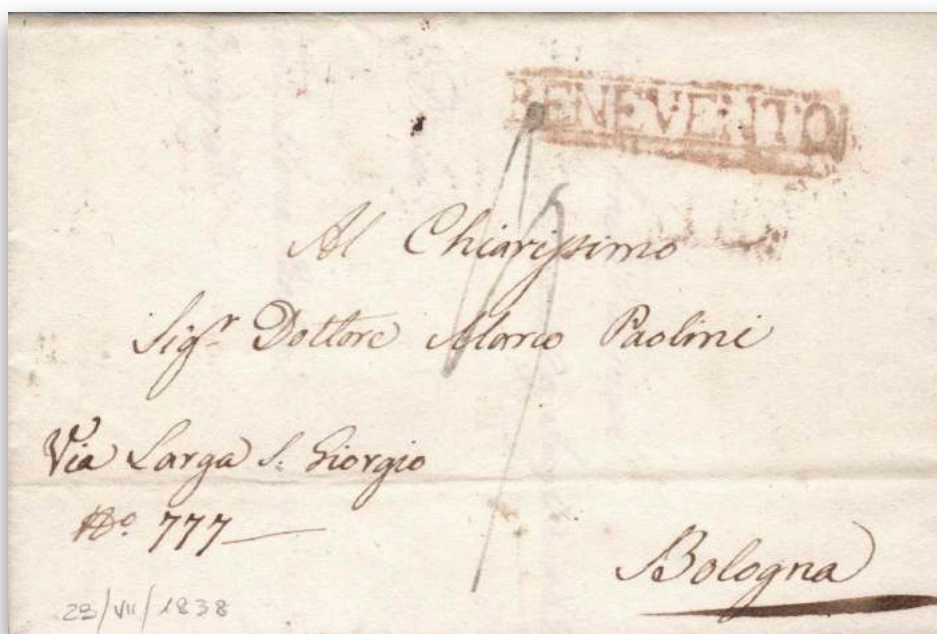 BENEVENTO
Al Chiarissimo
Sigr. Dottore Marco Paolini
Via Larga S. Giorgio
No. 777
Bologna
/VII/1838